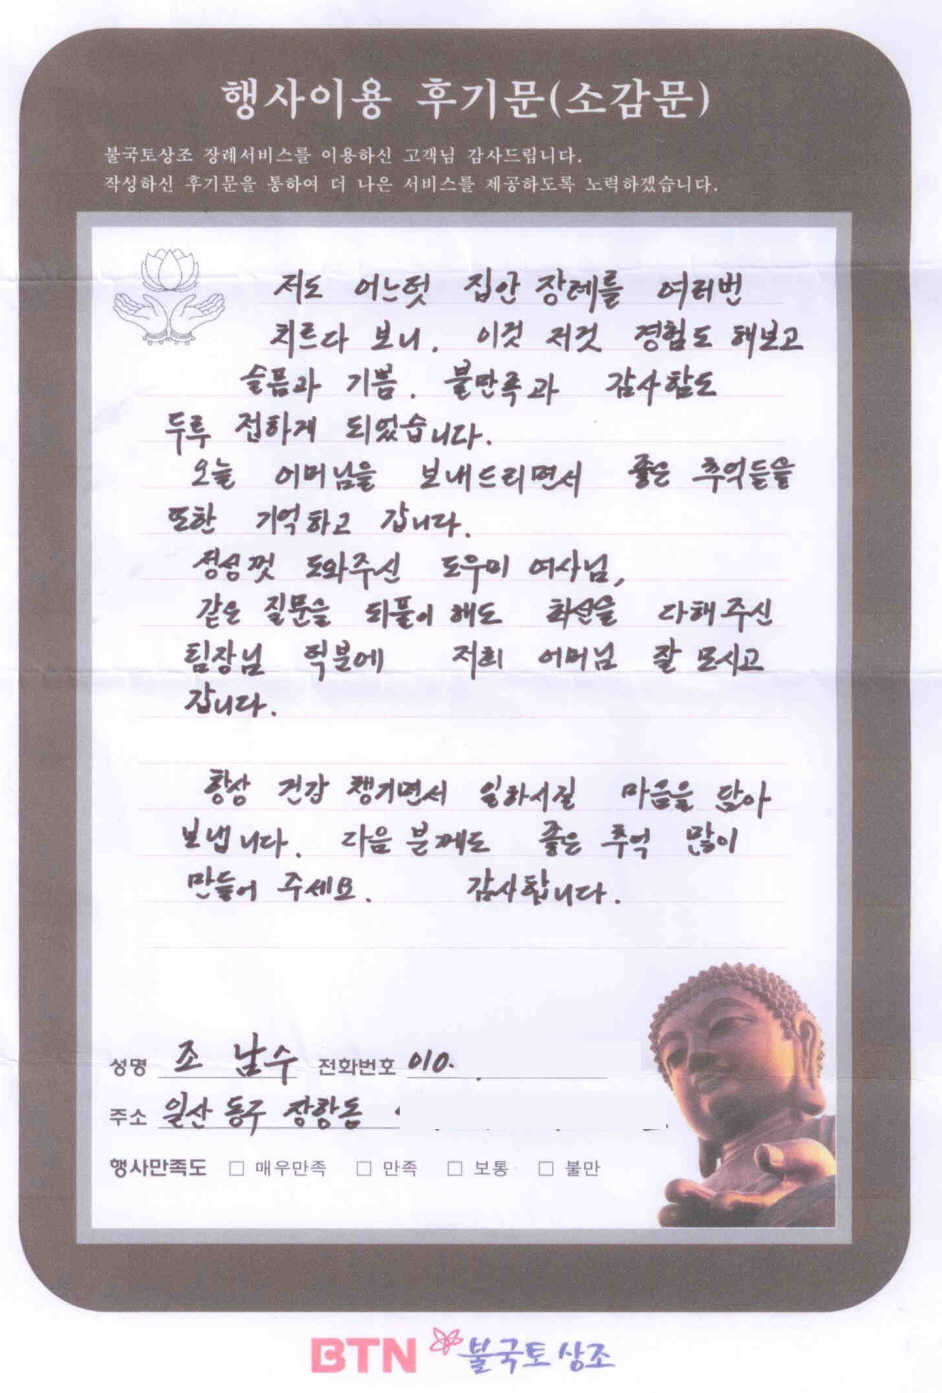 행사이용 후기문(소감문)
불국토상조 장례서비스를 이용하신 고객님 감사드립니다.
작성하신 후기문을 통하여 더 나은 서비스를 제공하도록 노력하겠습니다.
저도 어느덧 집안 장례를 여러번
치르다 보니. 이것 저것 경험도 해보고
슬픔과 기쁨. 불만족과 감사함도
두루 접하게 되었습니다.
오늘 어머님을 보내드리면서 좋은 추억들을
또한 기억하고 갑니다.
정성껏 도와주신 도우미 여사님,
같은 질문을 되풀이 해도 최선을 다해주신
팀장님 덕분에 저희 어머님 잘 모시고
갑니다.
항상 건강 챙기면서 일하시길 마음을 담아
보냅니다. 다음 분께도 좋은 추억 많이
만들어 주세요. 감사합니다.
성명 조 남수 전화번호 010.
주소 일산 동구 장항동
행사만족도 □ 매우만족 □ 만족 □ 보통 □ 불만
BTN 불국토상조